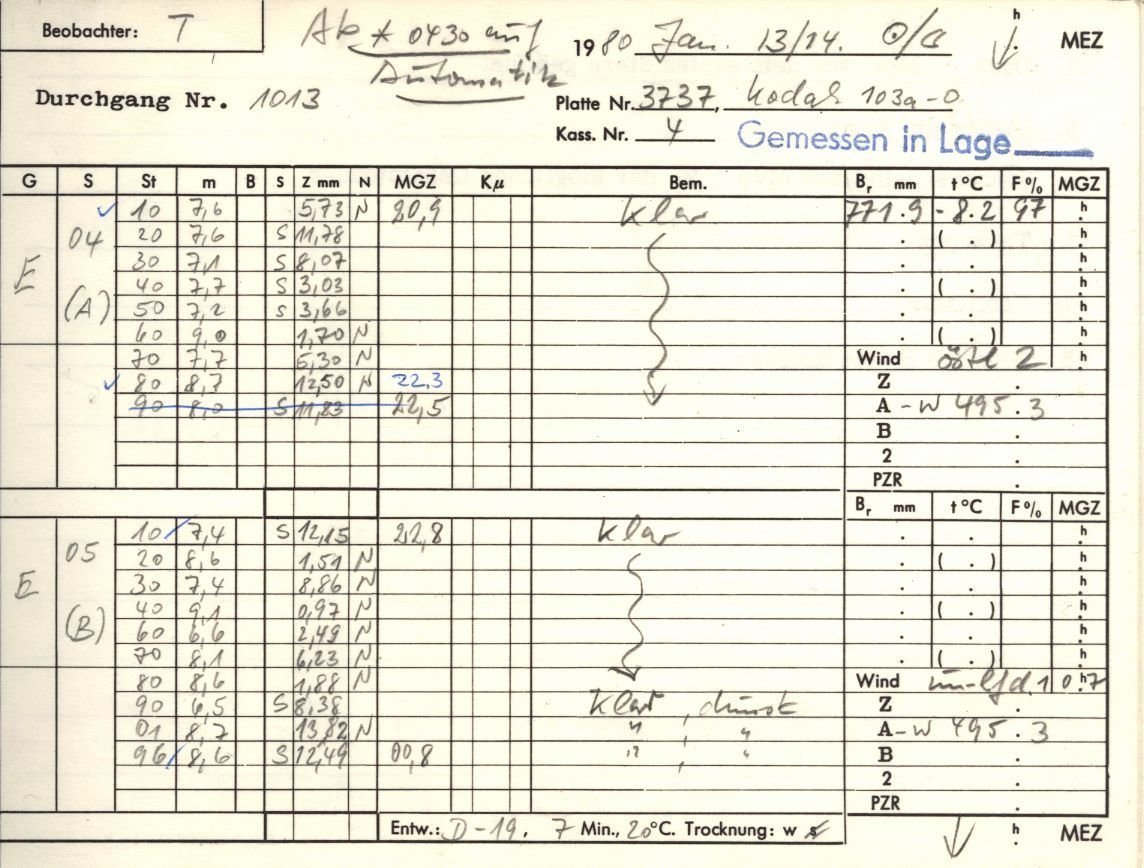 Beobachter: T Ab * 0430 auf 1980 Jan. 13/14. h MEZ
Automatik
Durchgang Nr. 1013 Platte Nr. 3737, Kodak 103a-O
Kass. Nr. 4 Gemessen in Lage
G S St m B S Z mm N MGZ Kµ Bem. Br mm t°C F% MGZ
10 7,6 5,73 N 20,9 klar 771.9 -8.2 97 h
04 20 7,6 S 11,78 ( . ) h
E 30 7,1 S 8,07 . h
40 7,7 S 3,03 ( . ) h
(A) 50 7,2 S 3,66 . h
60 9,0 1,70 N ( . ) h
70 7,7 5,30 N Wind östl 2 h
80 8,7 12,50 N 22,3 Z .
90 8,0 S 11,83 22,5 A -W 495.3
B .
2 .
PZR
Br mm t°C F% MGZ
10 7,4 S 12,15 22,8 klar . . h
05 20 8,6 1,51 N ( . ) h
E 30 7,4 8,86 N . . h
40 9,1 0,97 N ( . ) h
(B) 60 6,6 2,49 N . . h
70 8,1 6,23 N ( . ) h
80 8,6 1,88 N Wind 1 0.7 h
90 6,5 S 8,38 klar, dunst Z .
01 8,7 13,82 N " , " A -W 495.3
96 8,6 S 12,49 00,8 " , " B .
2 .
PZR
Entw.: D-19. 7 Min., 20°C. Trocknung: w k h MEZ